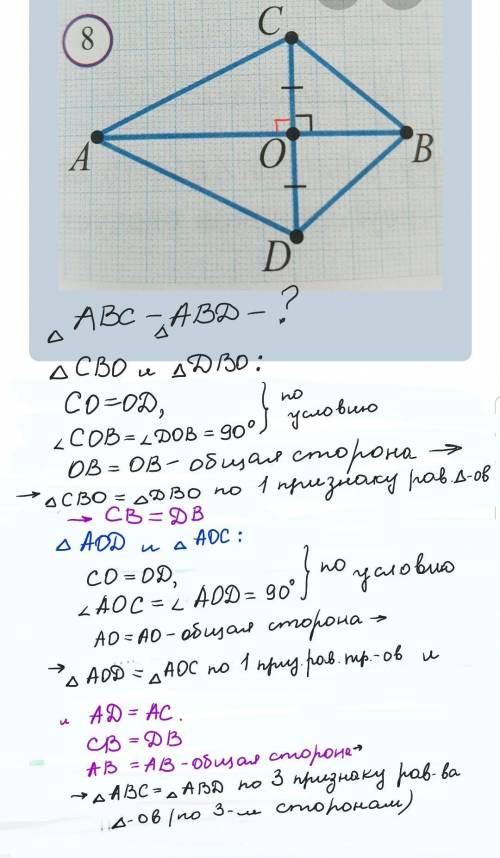 8
C
A
O
B
D
△ ABC – △ABD – ?
△ CBO и △DBO:
CO=OD,
∠COB=∠DOB=90° } по условию
OB = OB – общая сторона →
→ △CBO = △DBO по 1 признаку рав. Δ-ов
→ CB = DB
△ AOD и △ AOC:
CO = OD,
∠AOC = ∠ AOD = 90° } по условию
AO = AO – общая сторона →
→ △ AOD = △AOC по 1 приз. рав. тр.-ов и
и AD = AC.
CB = DB
AB = AB - общая сторона→
→ △ABC = △ABD по 3 признаку рав-ва
Δ-ов (по 3-м сторонам)